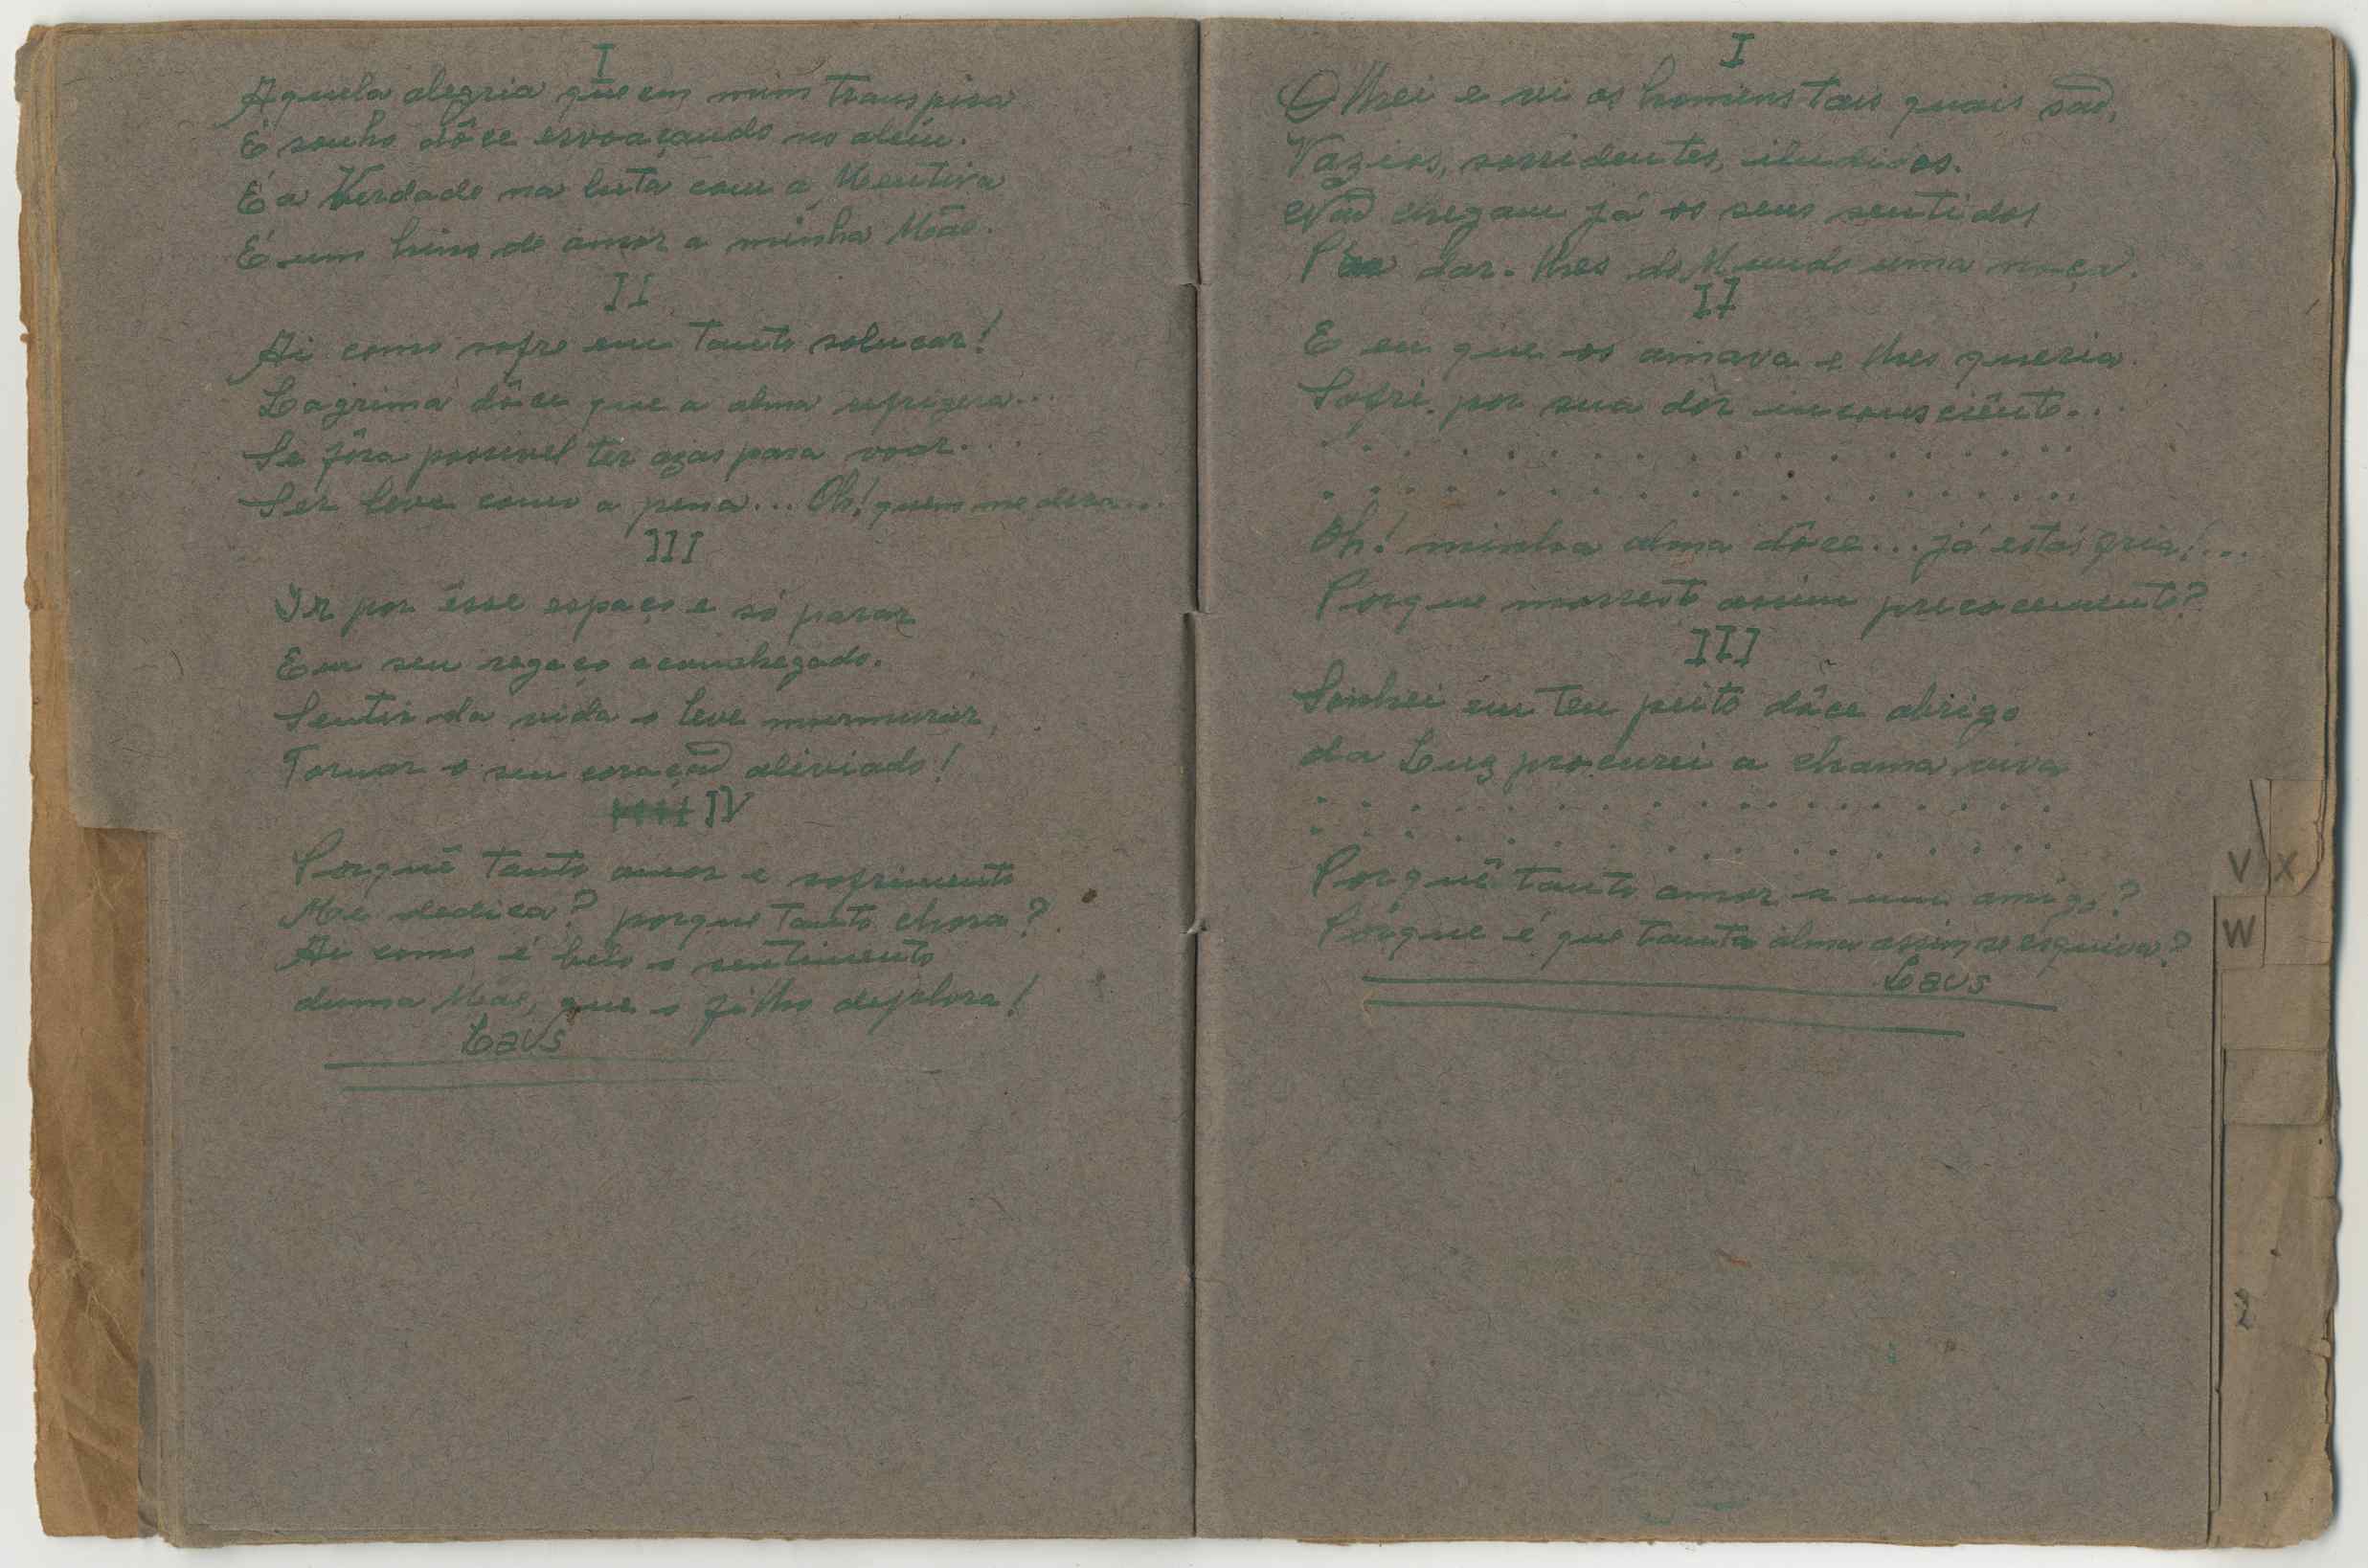 I
Aquela alegria que em mim transpira
É sonho dôce esvoaçando no além.
É a Verdade na luta com a Mentira
É um hino de amor a minha Mãe.
II
Ai como sofre em tanto solucar!
Lagrima dôce que a alma refrigera...
Se fôra possivel ter azas para voar...
Ser leve como a pena... Oh! quem me dera...
III
Ir por êsse espaço e só parar
Em seu regaço aconchegado.
Sentir da vida o leve murmurar,
Tornar o seu coração aliviado!
IV
Porquê tanto amor e sofrimento
Me dedica? porque tanto chora?
Ai como é belo o sentimento
duma Mãe, que o filho deplora!
Laus
I
Olhei e vi os homens tais quais são,
Vazios, sorridentes, iludidos.
Não chegam já os seus sentidos
P'ra dar-lhes do Mundo uma noção.
II
E eu que os amava e lhes queria
Sofri por sua dôr inconsciênte...
. . . . . . . . . . . . . . . . . .
. . . . . . . . . . . . . . . . . .
Oh! minha alma dôce... já estás fria!...
Porque morreste assim precocemente?
III
Sonhei em teu peito dôce abrigo
da Luz procurei a chama viva
. . . . . . . . . . . . . . . . . .
. . . . . . . . . . . . . . . . . .
Porquê tanto amor a um amigo?
Porque é que tanta alma assim se esquiva?
Laus
V X
W